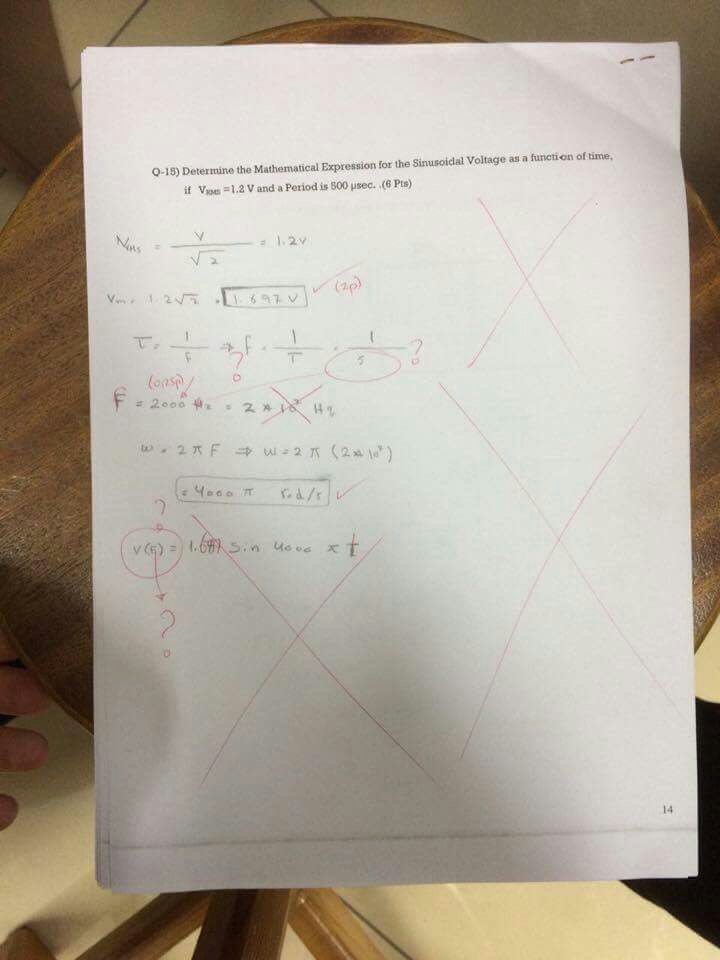 Q-15) Determine the Mathematical Expression for the Sinusoidal Voltage as a function of time,
if VRMS =1.2 V and a Period is 500 µsec. .(6 Pts)
VRMS = V / √2 = 1.2V
Vm = 1.2√2 = 1.697 V ✓ (2p)
T = 1/f ⇒ f = 1/T = 1/5 ?
?
(0.25p)
F = 2000 Hz = 2 * 10³ Hz
ω = 2πF ⇒ ω = 2π (2*10³)
= 4000 π rad/s ✓
?
V(t) = 1.697 sin 4000 π t
?
14